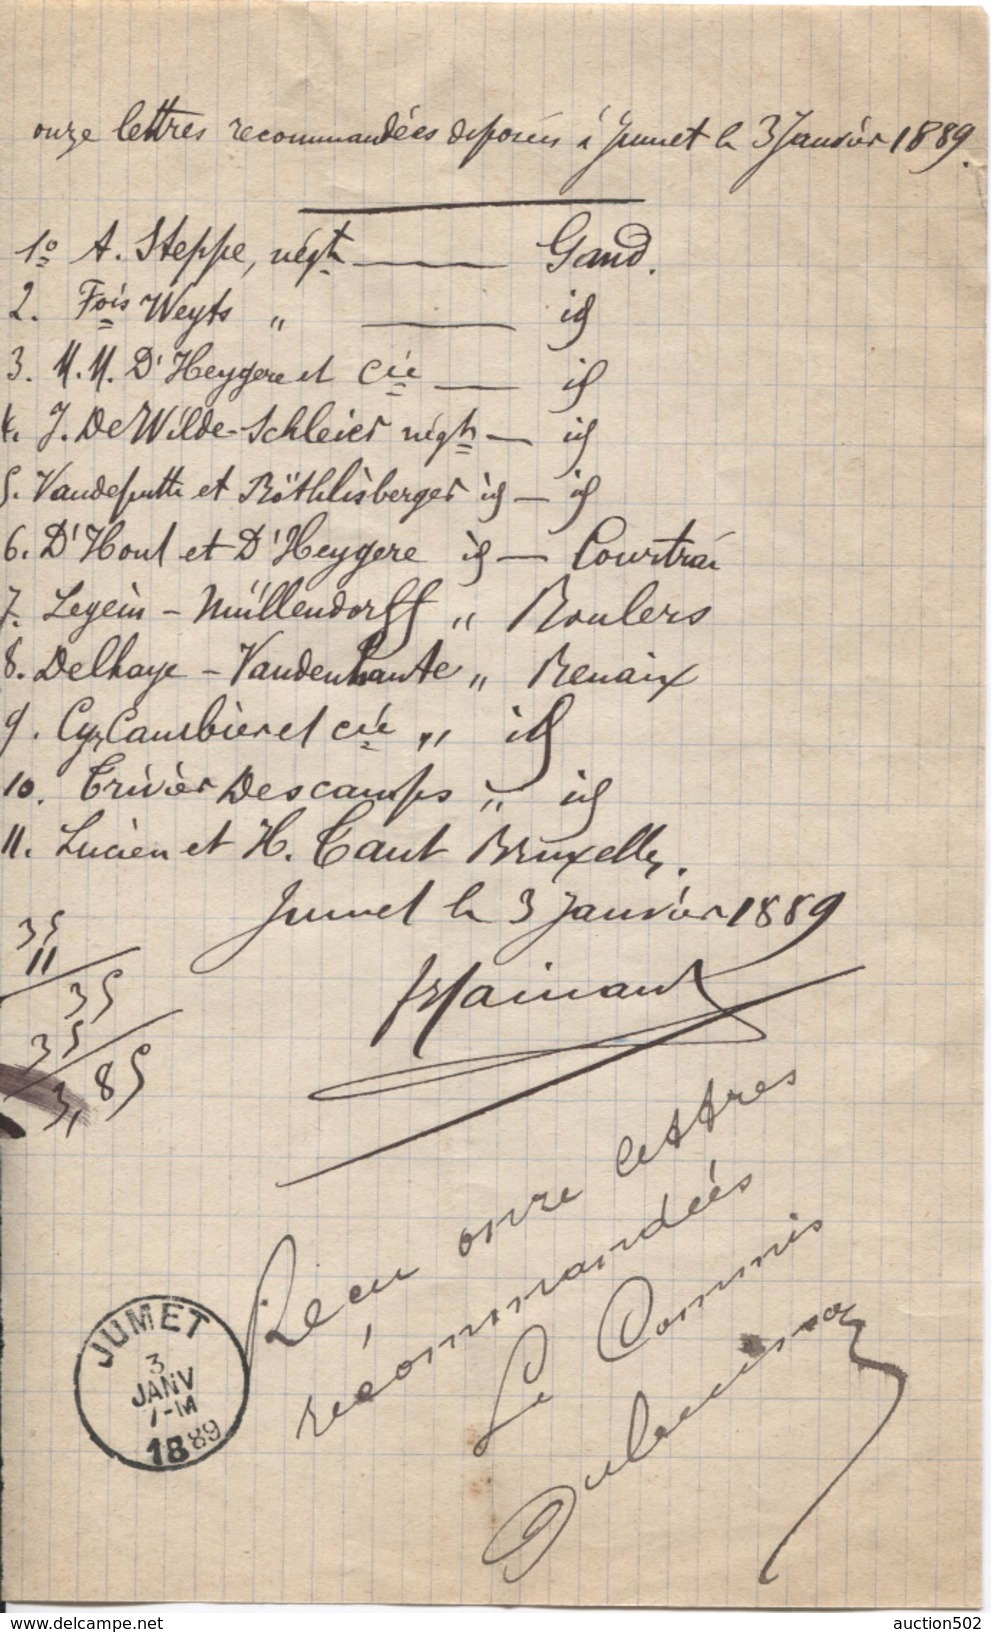 onze lettres recommandées déposées à Jumet le 3 Janvier 1889.
1º A. Steppe, négt Gand.
2. Fois Weyts " id
3. M.M. D'Heygere et Cie id
4. J. De Wilde-Schleier négt id
5. Vandeputte et Röthlisberger id id
6. D'Hont et D'Heygere id Courtrai
7. Legein - Müllendorff " Roulers
8. Delhaye - Vandenhaute " Renaix
9. Cambier et Cie " id
10. Trivier Descamps " id
11. Lucien et H. Tant Bruxelles.
Jumet le 3 Janvier 1889
35
11
35
35
3,85
Reçu onze lettres
recommandées
Le Commis
JUMET
3
JANV
7-M
1889
www.delcampe.net
auction502